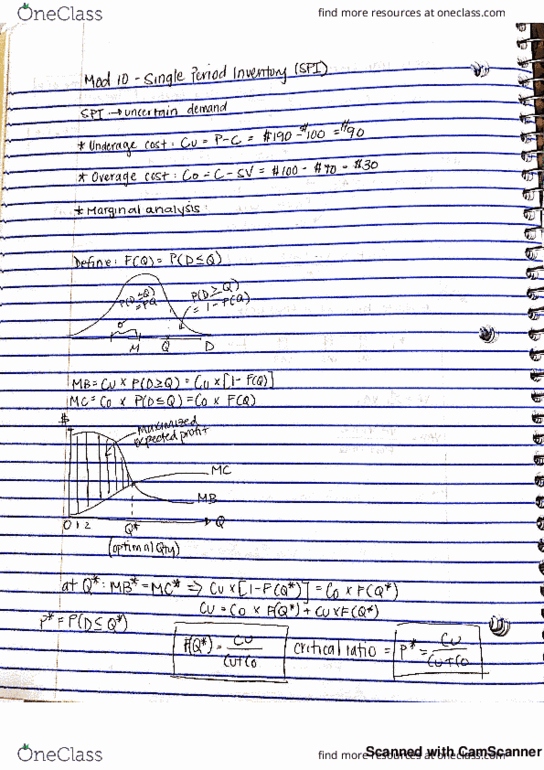 OneClass
find more resources at oneclass.com
Mod 10 - Single Period Inventory (SPI)
SPI → uncertain demand
* Underage cost: Cu = P-C = $190 - $100 = $90
* Overage cost: Co = C - SV = $100 - $70 - $30
* Marginal analysis:
Define: F(Q) = P(D ≤ Q)
P(D ≤ Q)
P(D ≥ Q)
= 1 - F(Q)
σ
M Q D
MB = Cu x P(D≥Q) = Cu x [1- F(Q)]
MC = Co x P(D≤Q) = Co x F(Q)
$
Maximized
expected profit
MC
MB
0 1 2 Q* Q
(optimal Qty)
at Q*: MB* = MC* ⇒ Cu x [1-F(Q*)] = Co x F(Q*)
Cu = Co x F(Q*) + Cu x F(Q*)
P* = P(D ≤ Q*)
F(Q*) = Cu / Cu+Co critical ratio = P* = Cu / Cu+Co
OneClass
find more resources at oneclass.com
Scanned with CamScanner